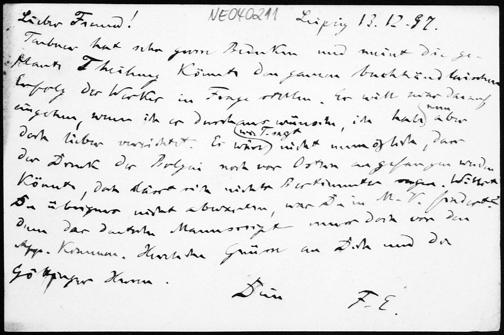 Lieber Freund! NE040211 Leipzig 13.12.97.
Teubner hat sehr grosse Bedenken und meint die ge-
plante Theilung könnte den ganzen buchhändlerischen
Erfolg des Werkes in Frage stellen. Er will zwar darauf
eingehen, wenn ich es durchaus wünsche, ich habe nun aber
doch lieber verzichtet. Es wäre nicht unmöglich, dass
der Druck der Bolyai noch vor Ostern angefangen werden
könnte, doch lässt sich nichts Bestimmtes sagen. Willst
Du übrigens nicht abwarten, was Du in M. V. findest?
denn das deutsche Manuscript muss doch vor den
App. kommen. Herzliche Grüsse an Dich und die
Göttinger Herren.
Dein F. E.